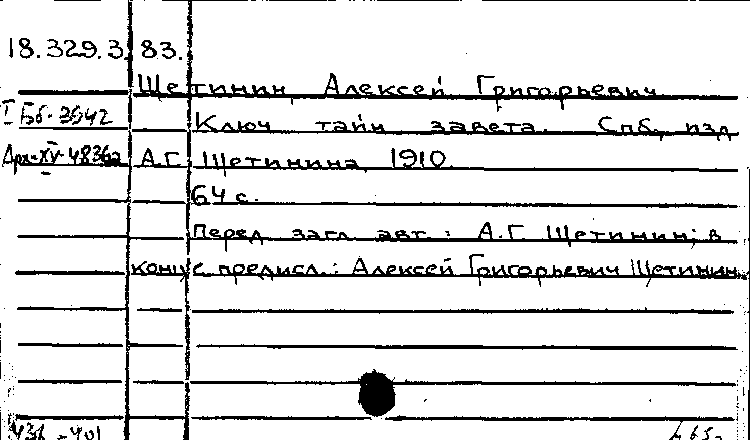 18.329.3.83.
Щетинин, Алексей Григорьевич.
I Бб-3542 Ключ тайн завета. Спб, изд
Арх-XV-4836а А.Г. Щетинина, 1910.
64 с.
Перед загл. авт.: А.Г. Щетинин; в
конце предисл.: Алексей Григорьевич Щетинин.